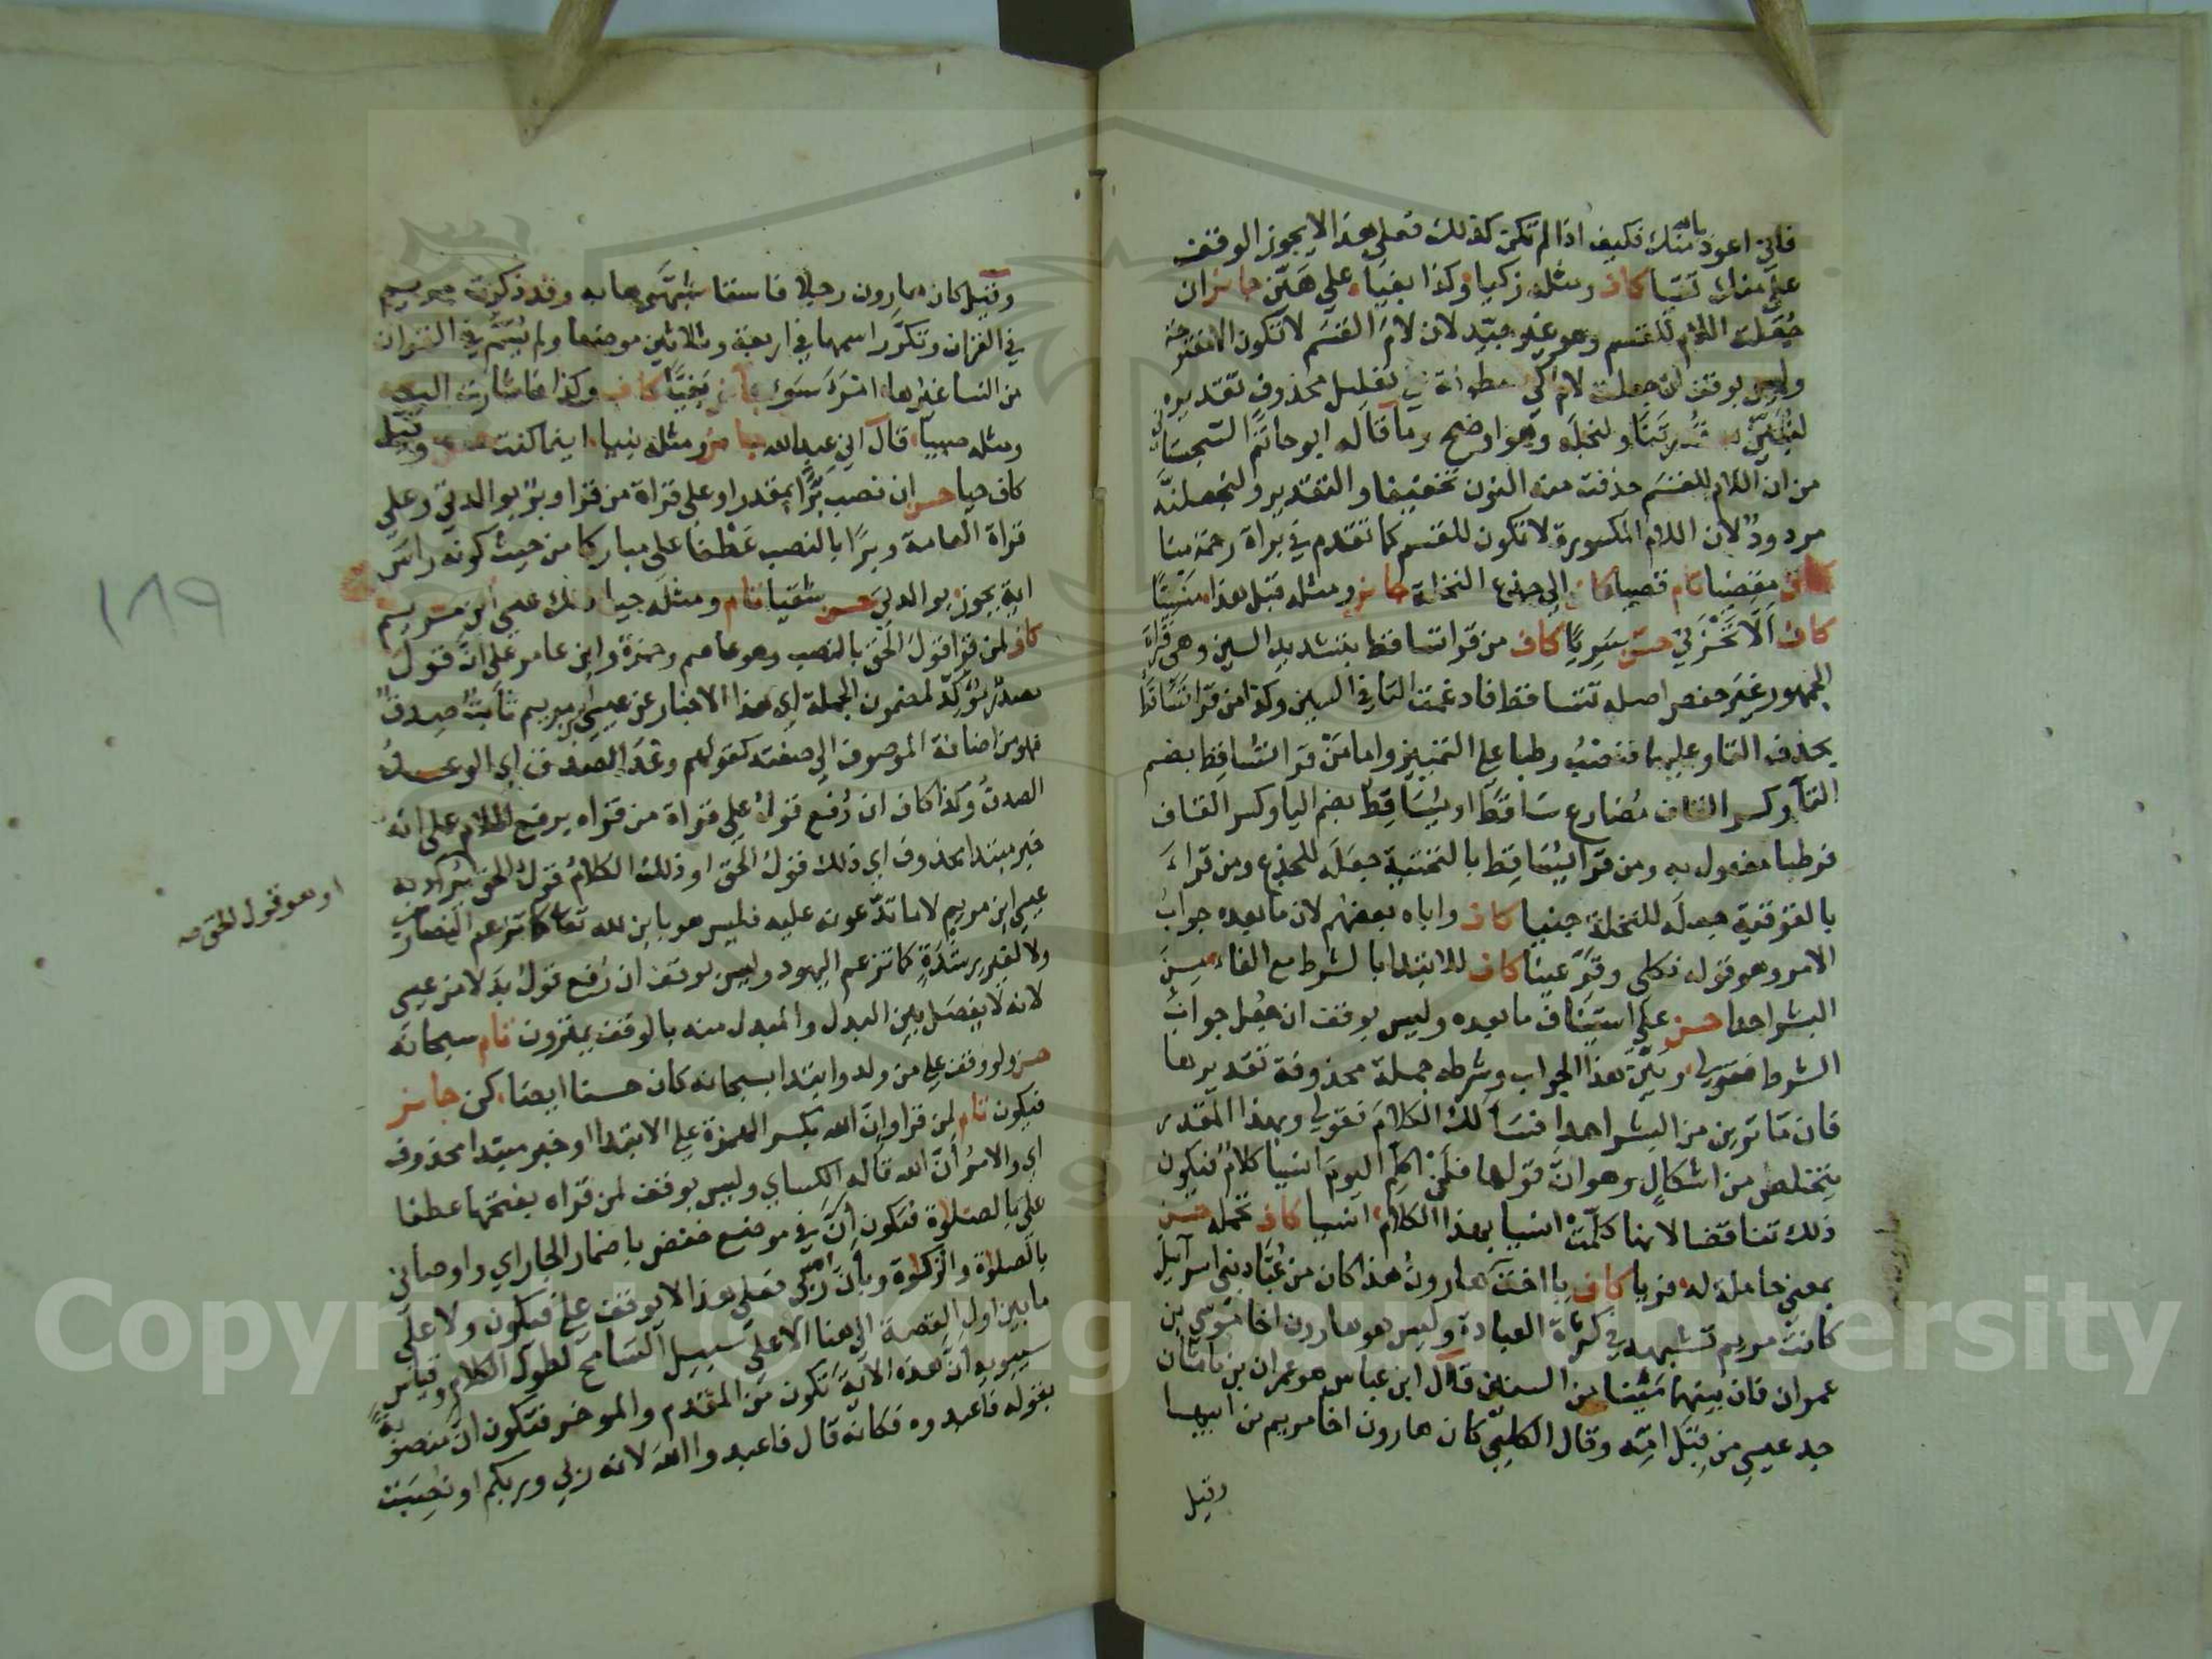 فاني اعوذ بالله منك فكيف اذا لم تكن كذلك فعلى هذا لا يجوز الوقف
على منك تقيا كاف ومثله زكيا وكذا بغيا على هين جائز ان
جعلت اللام للقسم وهو غير جيد لان لام القسم لا تكون الا مفتوحة
وليس بوقف ان جعلت لام كي معطوفة على تعليل محذوف تقديره
لنبين به قدرتنا ولنجعله وهو اوضح وما قاله ابو حاتم السجستاني
من ان اللام للقسم حذفت منه النون تخفيفا والتقدير ولنجعلنه
مردود لان اللام المكسورة لا تكون للقسم كما تقدم في براة رحمة منا
كاف مقضيا تام قصيا كاف الى جذع النخلة جائز ومثله قبل هذا منسيا
كاف الا تحزني حسن سريا كاف من قرا تساقط بتشديد السين وهي قراة
الجمهور غير حفص اصله تتساقط فادغمت التا في السين وكذا من قرا تساقط
بحذف التا وعليهما فنصب رطبا على التمييز واما من قرا تساقط بضم
التا وكسر القاف مضارع ساقط او يساقط بضم اليا وكسر القاف
فرطبا مفعول به ومن قرا يساقط بالتحتية جعله للجذع ومن قراه
بالفوقية جعله للنخلة جنيا كاف واباه بعضهم لان ما بعده جواب
الامر وهو قوله فكلي وقري عينا كاف للابتدا بالشرط مع الفاء من
البشر احدا حسن على استيناف ما بعده وليس بوقف ان جعل جواب
الشرط فقولي وبين هذا الجواب وشرطه جملة محذوفة تقديرها
فان ما ترين من البشر احدا فسالك الكلام فقولي وبهذا المقدر
يتخلص من اشكال وهو ان قولها فلن اكلم اليوم انسيا كلام فيكون
ذلك تناقضا لانها كلمت انسيا بهذا الكلام انسيا كاف تحمله حسن
بمعنى حاملة له فريا كاف يا اخت هارون هذا كان من عباد بني اسرائيل
كانت مريم تشبهه في كثرة العبادة وليس هو هارون اخا موسى بن
عمران فان بينهما مئينا من السنين قال ابن عباس هو عمران بن ماثان
جد عيسى من قبل امه وقال الكلبي كان هارون اخا مريم من ابيها
وقيل
وقيل كان هارون رجلا فاسقا شبهوها به وقد ذكرت مريم
في القران وتكرر اسمها في اربعة وثلاثين موضعا ولم يسم في القران
من النسا غيرها امرء سوء جائز بغيا كاف وكذا فاشارت اليه
ومثله صبيا قال اني عبد الله جائز ومثله نبيا اينما كنت حسن وقيل
كاف حيا حسن ان نصب برا بمقدر او على قراة من قرا وبر بوالدتي وعلى
قراة العامة وبرا بالنصب عطفا على مباركا من حيث كونه راس
اية يجوز بوالدتي حسن شقيا تام ومثله حيا ذلك عيسى ابن مريم
كاف لمن قرا قول الحق بالنصب وهو عاصم وحمزة وابن عامر على ان قول
مصدر مؤكد لمضمون الجملة اي هذا الاخبار عن عيسى ابن مريم ثابت صدق
فهو من اضافة الموصوف الى صفته كقولهم وعد الصدق اي الوعد
الصدق وكذا كاف ان رفع قول على قراة من قراه برفع اللام على انه
خبر مبتدا محذوف اي ذلك قول الحق او ذلك الكلام قول الحق يراد به
عيسى ابن مريم لا ما تدعونه عليه فليس هو بابن لله تعالى كما تزعم النصارى
ولا لغير رشدة كما تزعم اليهود وليس بوقف ان رفع قول بدلا من عيسى
لانه لا يفصل بين البدل والمبدل منه بالوقف يمترون تام سبحانه
حسن ولو وقف على من ولد وابتدا بسبحانه كان حسنا ايضا كن جائز
فيكون تام لمن قرا وان الله بكسر الهمزة على الابتدا او خبر مبتدا محذوف
اي والامر ان الله قاله الكساي وليس بوقف لمن قراه بفتحها عطفا
على بالصلوة فتكون ان في موضع خفض باضمار الجار اي واوصاني
بالصلوة والزكوة وبان الله ربي فعلى هذا لا يوقف على فيكون ولا على
ما بين اول القصة الى هنا الا على سبيل التسامح لطول الكلام وقياس
سيبويه ان هذه الاية تكون من المقدم والموخر فتكون ان منصوبة
بقوله فاعبدوه فكانه قال فاعبدوا الله لانه ربي وربكم او نصبت
او هو قول الحق صح
١٨٩
Copyright © King Saud University